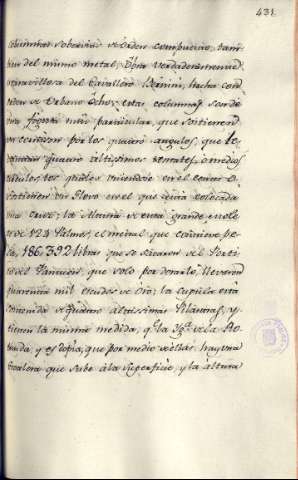 431.
columnas soberbias de orden compuesto, tam-
bien del mismo metal; Obra verdaderamente
maravillosa del Cavallero Bernini, hecha con
orden de Urbano Ocho; estas columnas son de
una figura mui particular, que sostienen
su cornison por los quatro angulos, que le-
vantan quatro altissimos remates, ò medios
el centro
sostienen un Globo en el que está colocada
una Cruz; la Altura de esta grande mole
es de 124 Palmos, el metal que contiene pe-
sa, 186,392 libras que se sacaron del Porti-
co del Panteon, que solo por dorarlo, llevaron
quarenta mil Escudos de Oro; la Cupula está
sostenida de quatro altissimos Pilastras, y
tienen la misma medida, q.e la de la Ro-
tunda, y es dopia, que por medio de ellas hay una
Escalera que sube à la superficie, y la altura